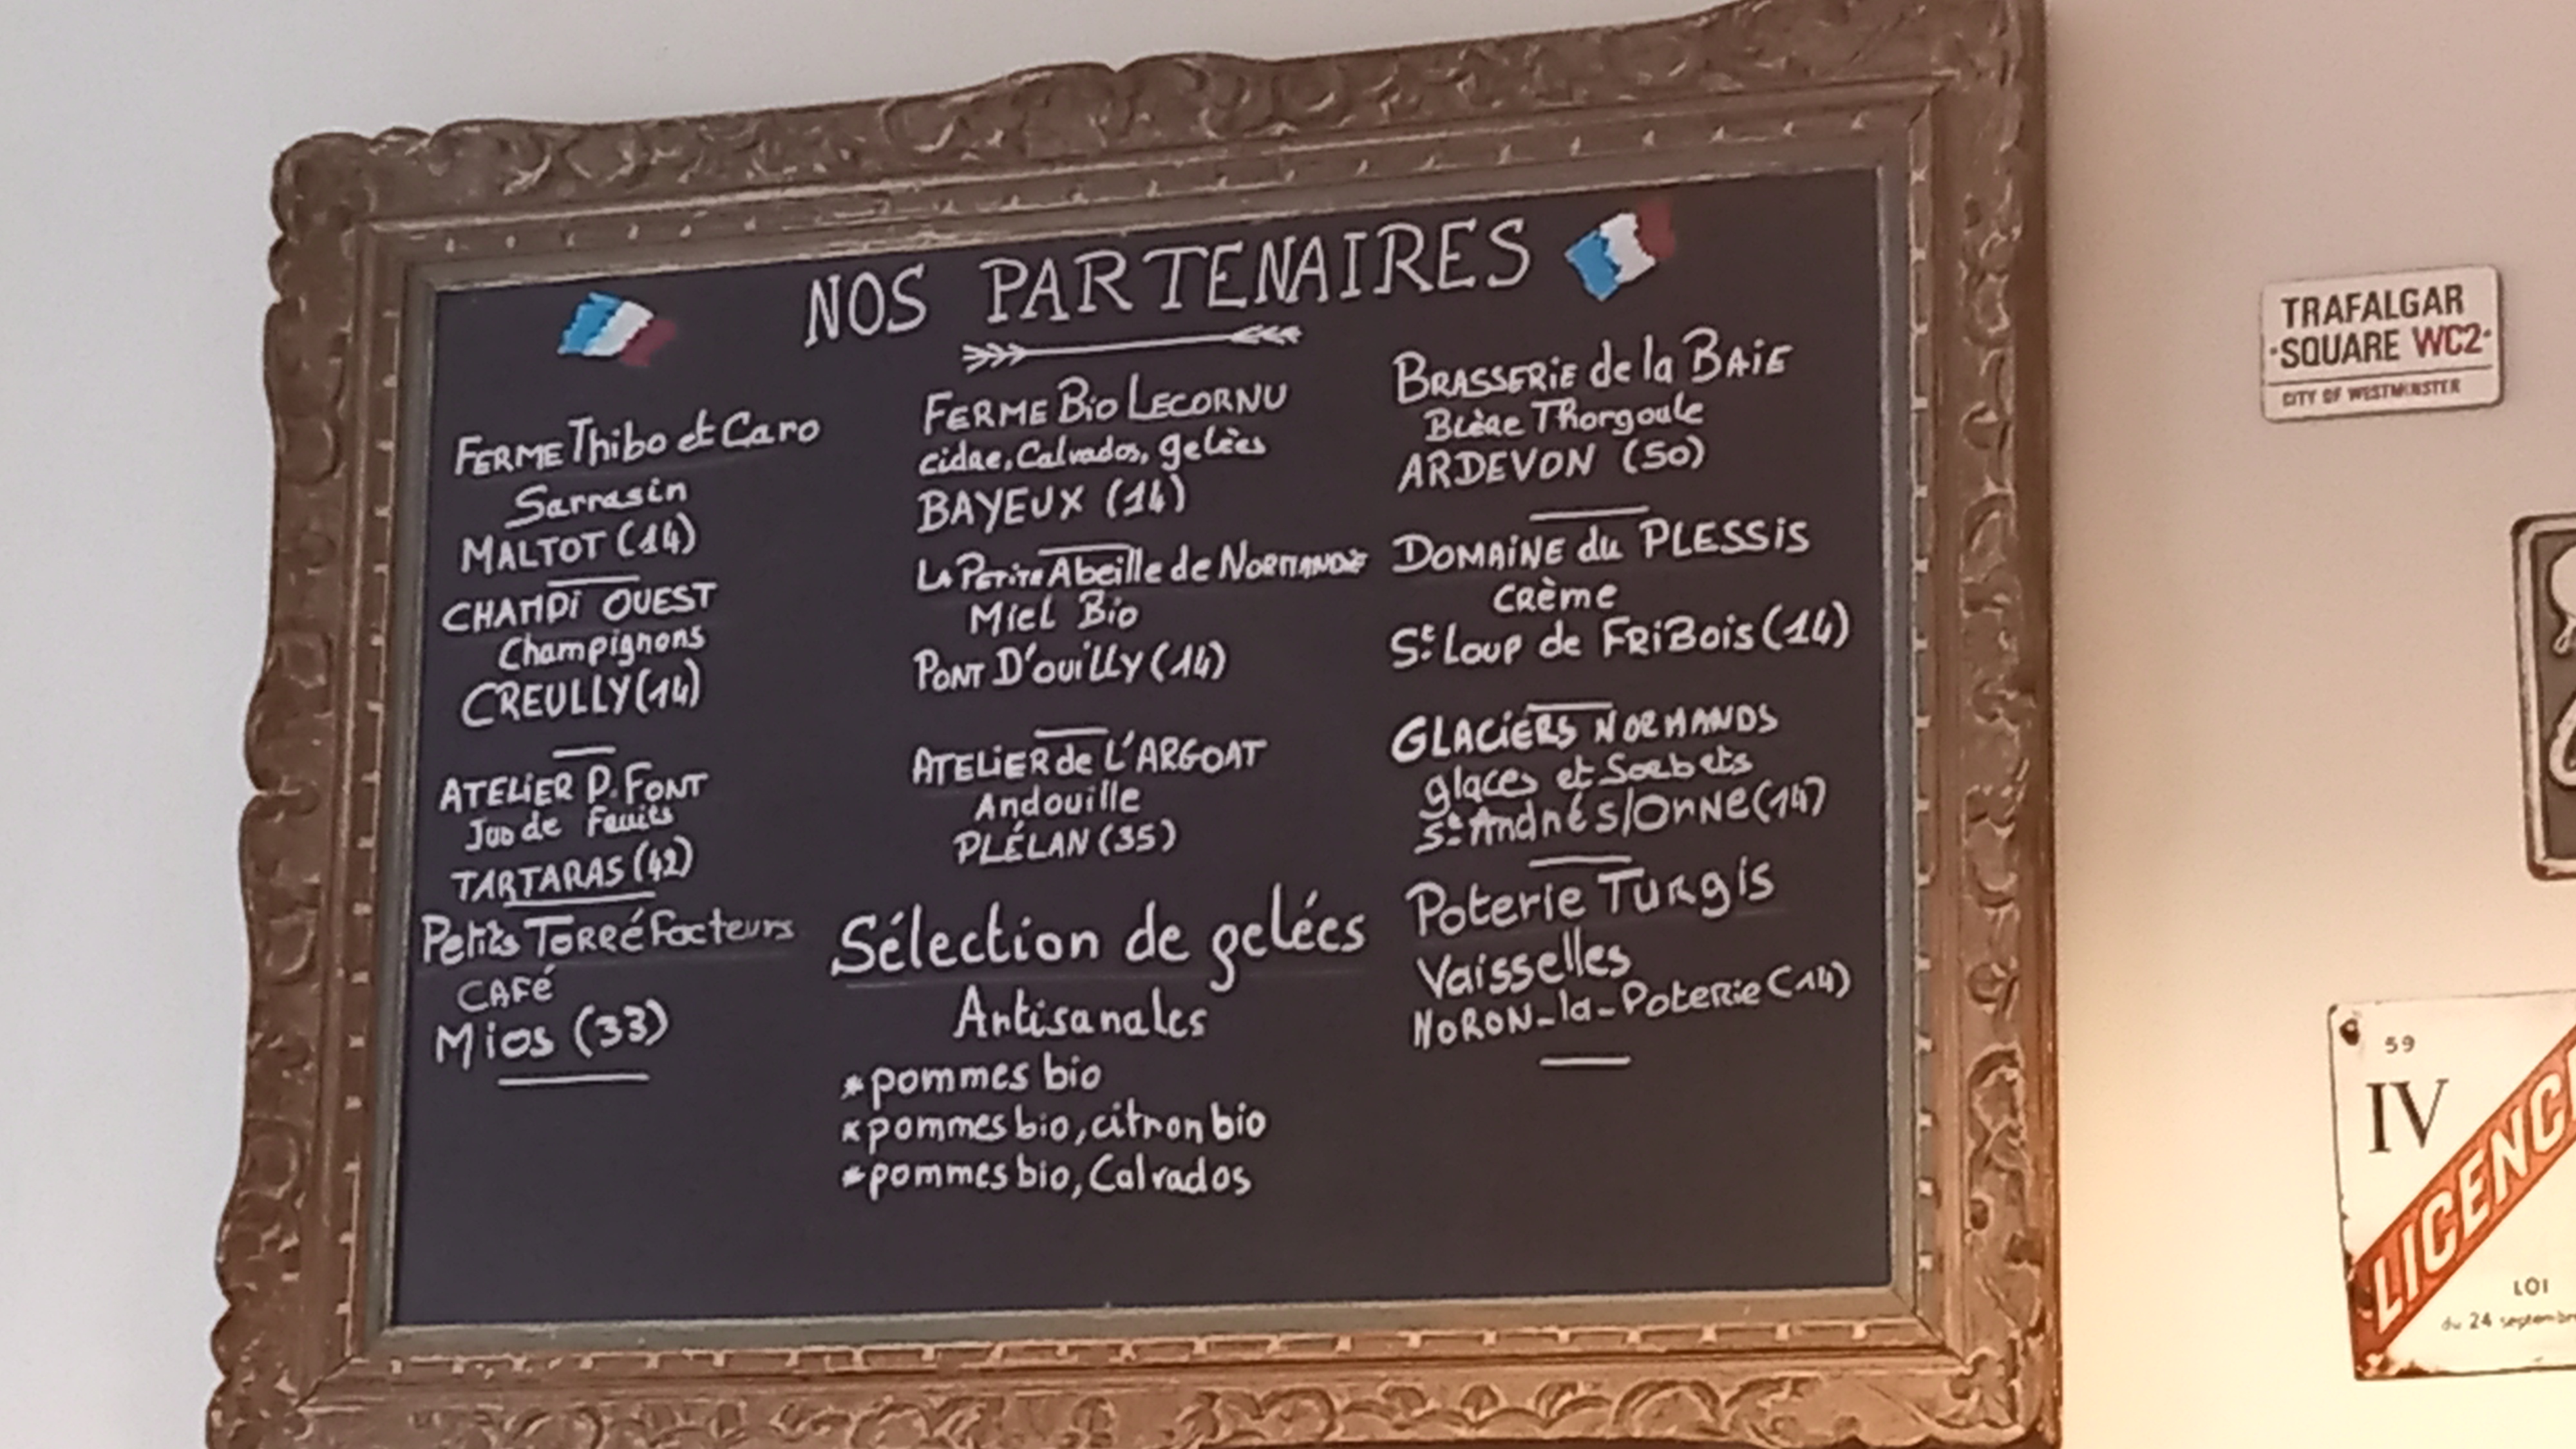 NOS PARTENAIRES
FERME Thibo et Caro
Sarrasin
MALTOT (14)
CHAMPi OUEST
Champignons
CREULLY (14)
ATELiER P. FONT
Jus de Fruits
TARTARAS (42)
Petits TORRéFacteurs
CAFé
Mios (33)
FERME Bio LECORNU
cidre, Calvados, gelées
BAYEUX (14)
LA PETiTE Abeille de NORMANDiE
Miel Bio
PONT D'OUiLLY (14)
ATELiER de L'ARGOAT
Andouille
PLÉLAN (35)
Sélection de gelées
Artisanales
*pommes bio
*pommes bio, citron bio
*pommes bio, Calvados
BRASSERiE de la BAiE
Bière Thorgoule
ARDEVON (50)
DOMAiNE du PLESSiS
CRème
St Loup de FRiBois (14)
GLACiERS NORMANDS
glaces et Sorbets
St André s/OrNe (14)
Poterie TURgis
Vaisselles
NORON-la-PoteRie (14)
TRAFALGAR
·SQUARE WC2·
CITY OF WESTMINSTER
59
IV
LICENC
LOI
du 24 septembr